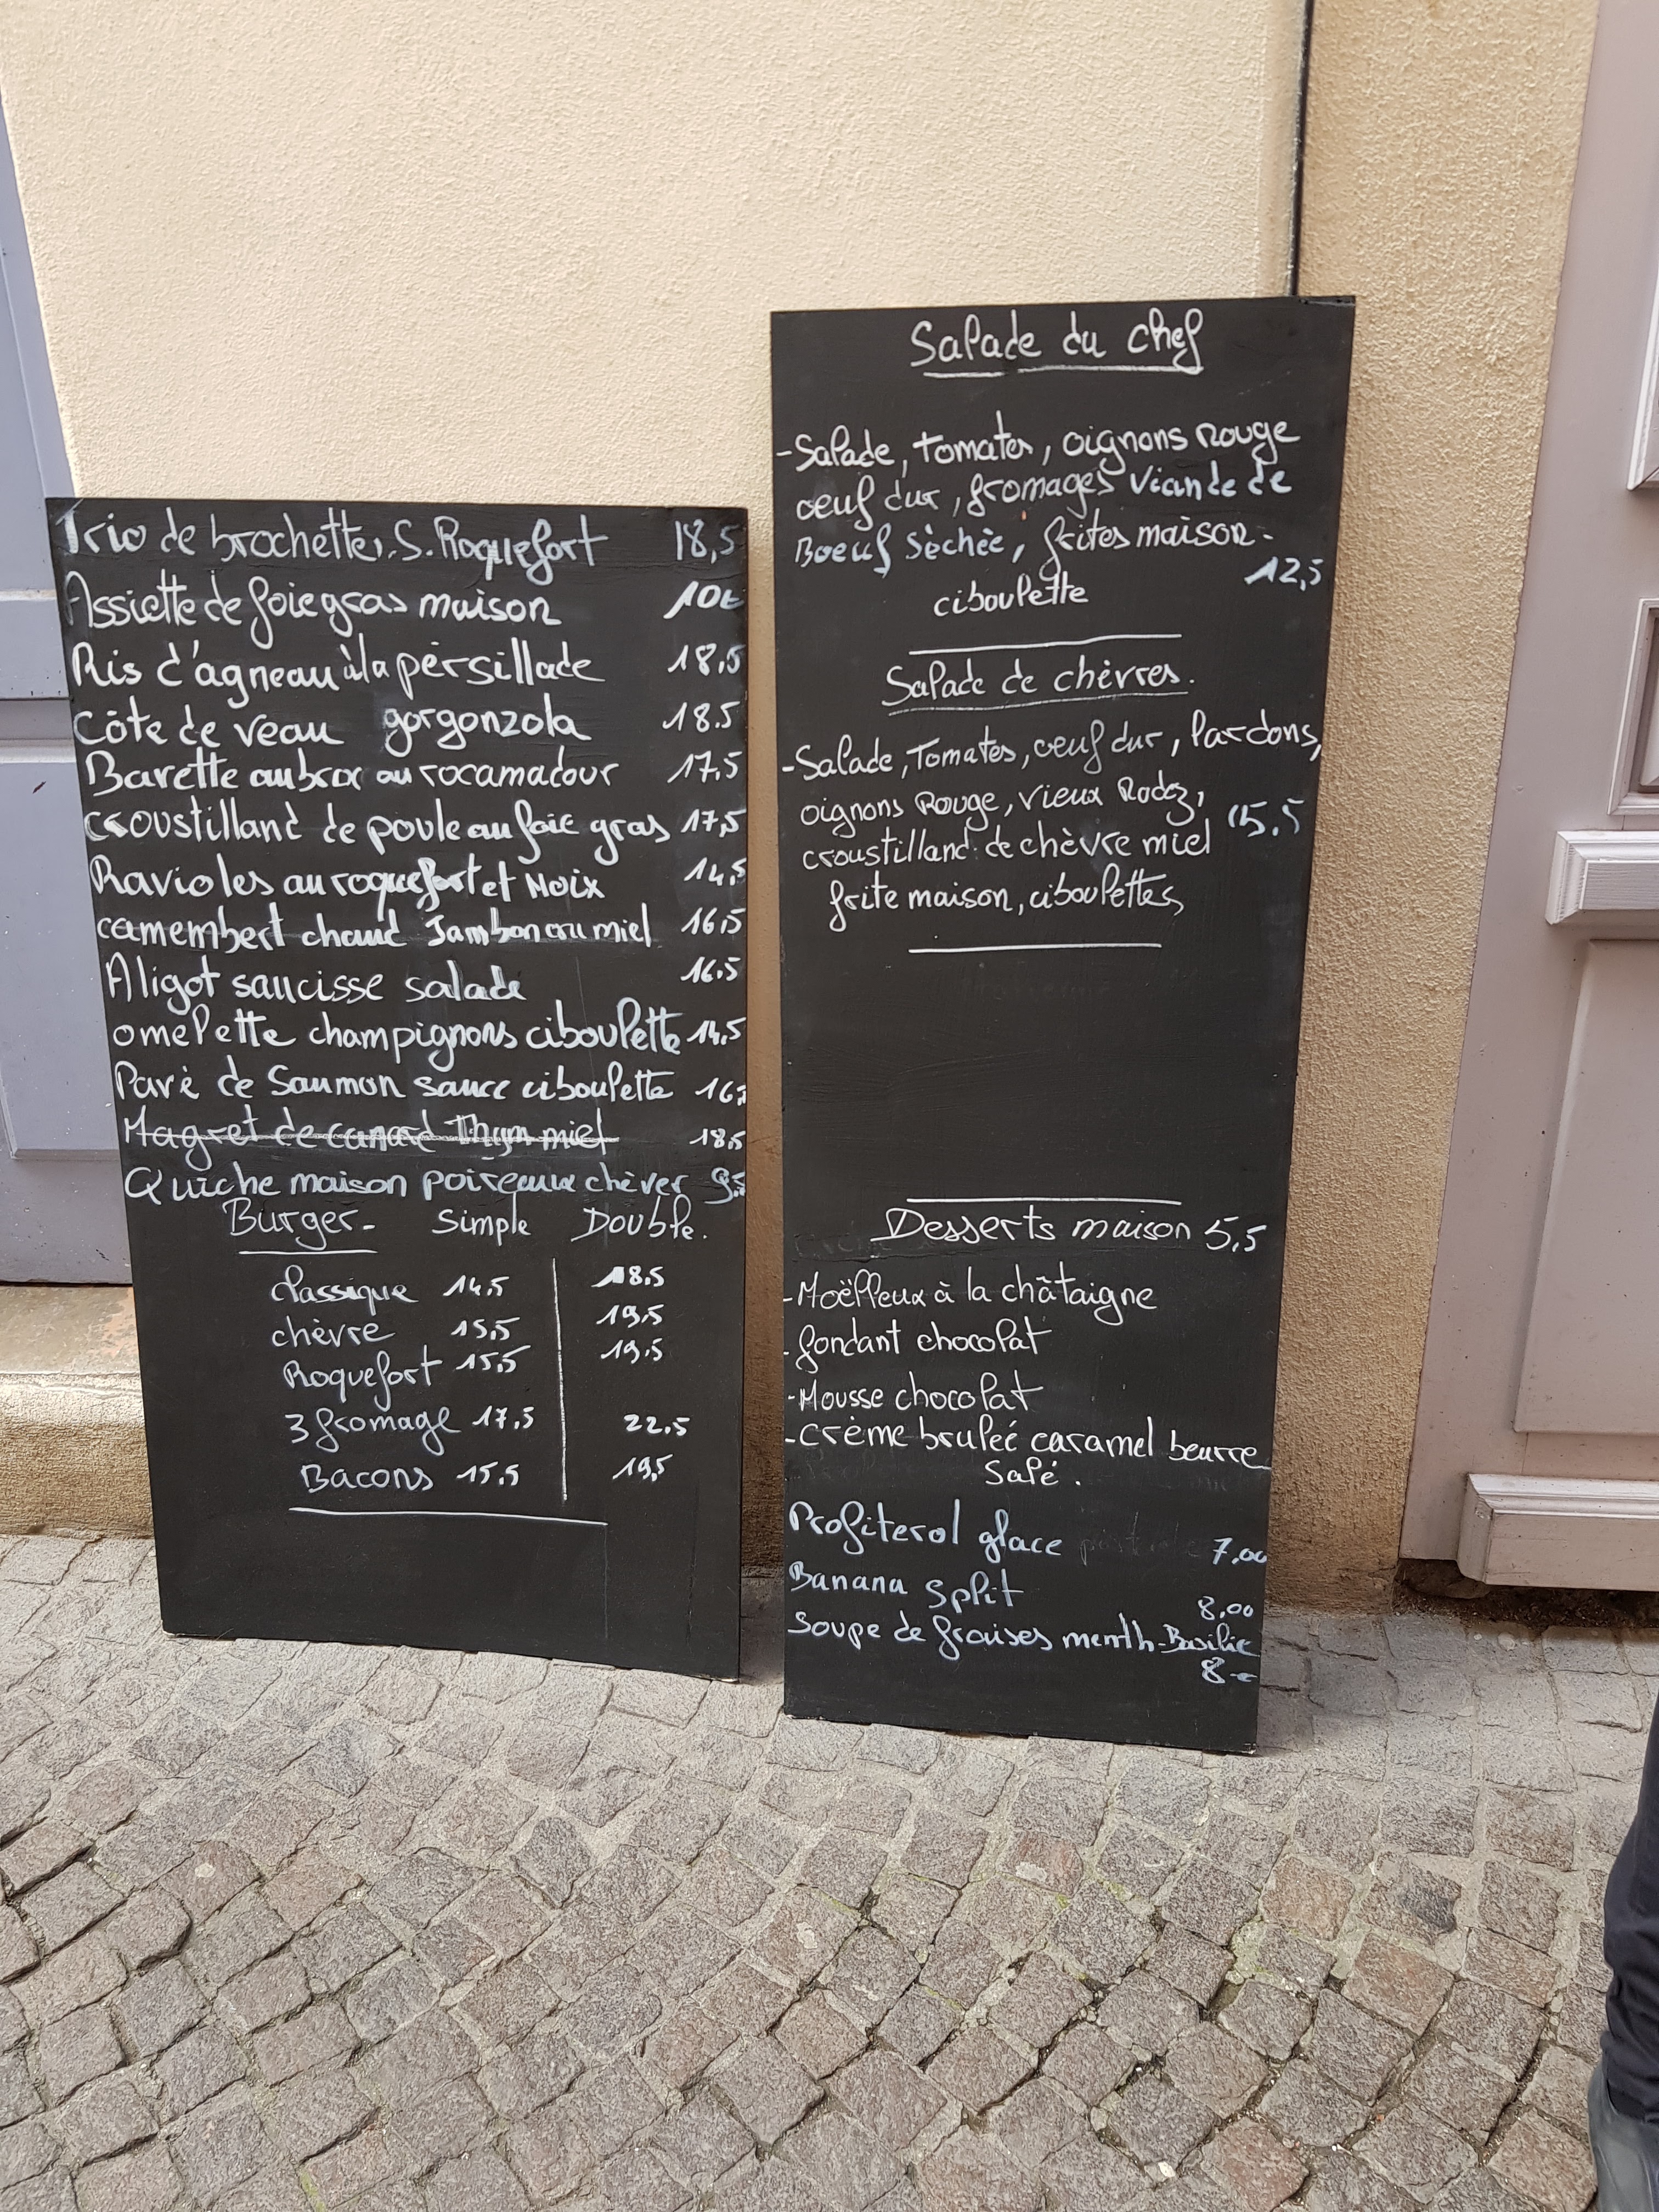 Trio de brochettes. S. Roquefort 18,5
Assiette de foie gras maison 10€
Ris d'agneau à la pérsillade 18.5
Côte de veau gorgonzola 18.5
Bavette aubrac au rocamadour 17,5
croustilland de poule au foie gras 17,5
Ravioles au roquefort et Noix 14,5
camembert chaud Jambon cru miel 16,5
Aligot saucisse salade 16.5
omelette champignons ciboulette 14,5
Pavé de Saumon sauce ciboulette 16,
Magret de canard Thym miel 18,5
Quiche maison poireaux chèver 9,5
Burger- Simple Double.
classique 14,5 18.5
chèvre 15,5 19,5
Roquefort 15,5 19,5
3 fromage 17,5 22,5
Bacons 15,5 19,5
Salade du chef
-Salade, tomates, oignons Rouge
oeuf dur, fromages Viande de
Boeuf Sèchée, frites maison-
12,5
ciboulette
Salade de chèvres.
-Salade, Tomates, oeuf dur, lardons,
oignons Rouge, vieux Rodez,
15.5
croustilland de chèvre miel
frite maison, ciboulettes
Desserts maison 5,5
-Moëlleux à la châtaigne
-fondant chocolat
-Mousse chocolat
-Crème bruleé caramel beurre
Salé.
Profiterol glace 7.00
Banana Split
8,00
Soupe de fraises menth-Basilic
8-€